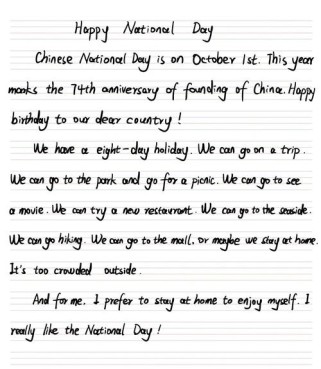 Happy National Day
Chinese National Day is on October 1st. This year
marks the 74th anniversary of founding of China. Happy
birthday to our dear country!
We have a eight-day holiday. We can go on a trip.
We can go to the park and go for a picnic. We can go to see
a movie. We can try a new restaurant. We can go to the seaside.
We can go hiking. We can go to the mall, or maybe we stay at home.
It's too crowded outside.
And for me. I prefer to stay at home to enjoy myself. I
really like the National Day!